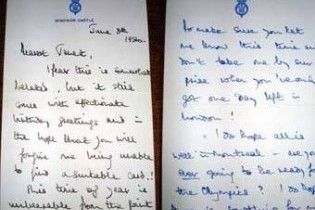 WINDSOR CASTLE
June 3th
1976.
Dearest
I fear this is somewhat
belated, but it still
comes with affectionate
birthday greetings and in
the hope that you will
forgive me being unable
to find a suitable card!
This time of year is
unbearable from the point
to make sure you let
me know this time and
don't take me by sur
prise when you've only
got one day left in
London!
I do hope all is
well in Montreal - are you
ever going to be ready for
the Olympics? I do hope